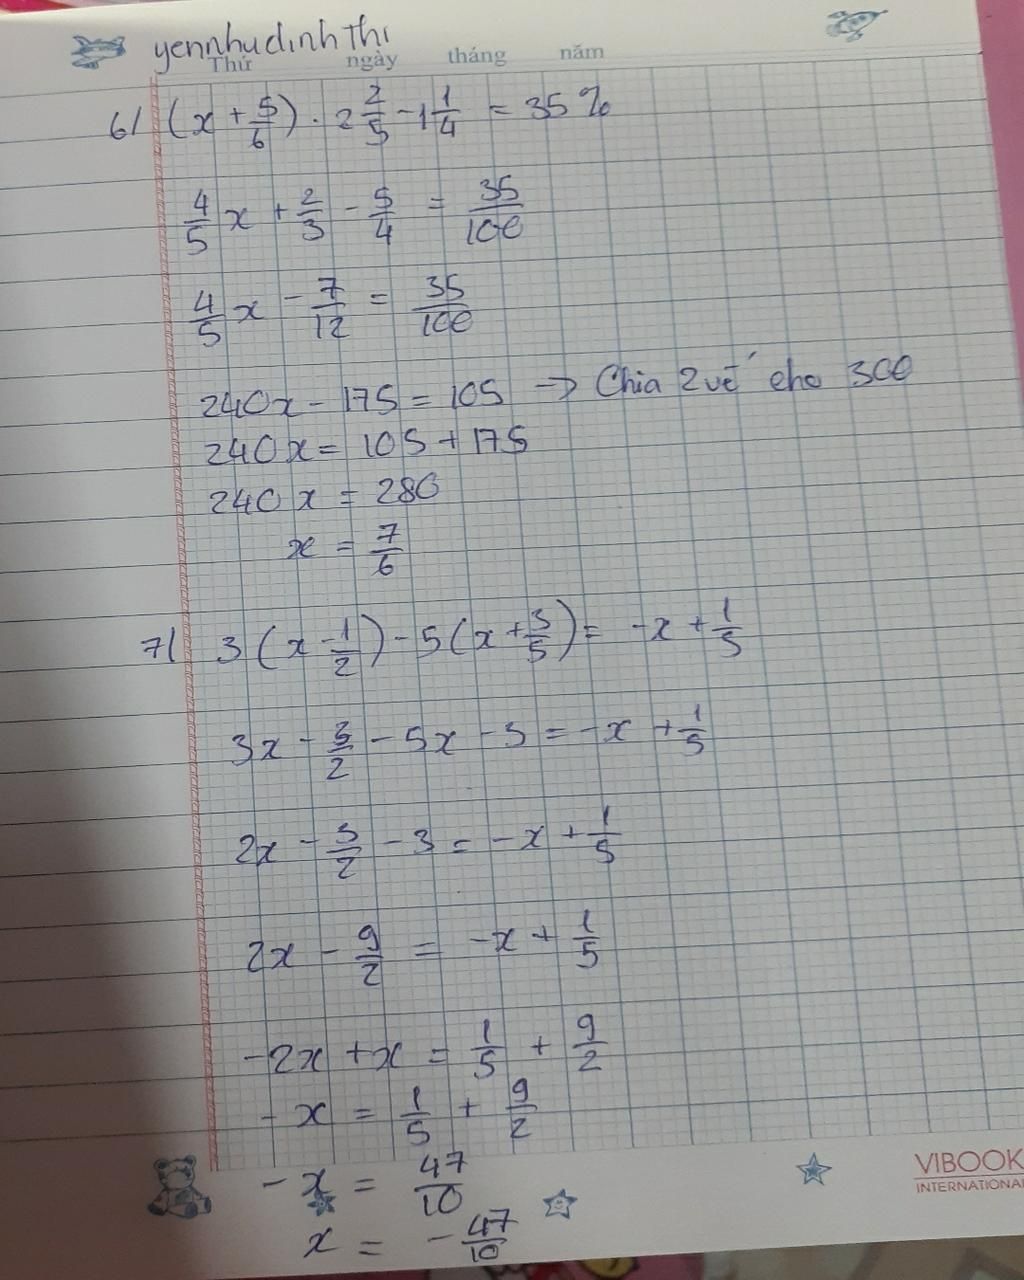 yennhudinhThi
Thứ ngày tháng năm
6/ (x + 5/6) . 2 2/5 - 1 1/4 = 35%
4/5 x + 2/3 - 5/4 = 35/100
4/5 x - 7/12 = 35/100
240x - 175 = 105 → Chia 2 vế cho 300
240x = 105 + 175
240x = 280
x = 7/6
7/ 3(x - 1/2) - 5(x + 3/5) = -x + 1/5
3x - 3/2 - 5x - 3 = -x + 1/5
2x - 3/2 - 3 = -x + 1/5
2x - 9/2 = -x + 1/5
-2x + x = 1/5 + 9/2
-x = 1/5 + 9/2
-x = 47/10
x = -47/10
VIBOOK
INTERNATIONAL